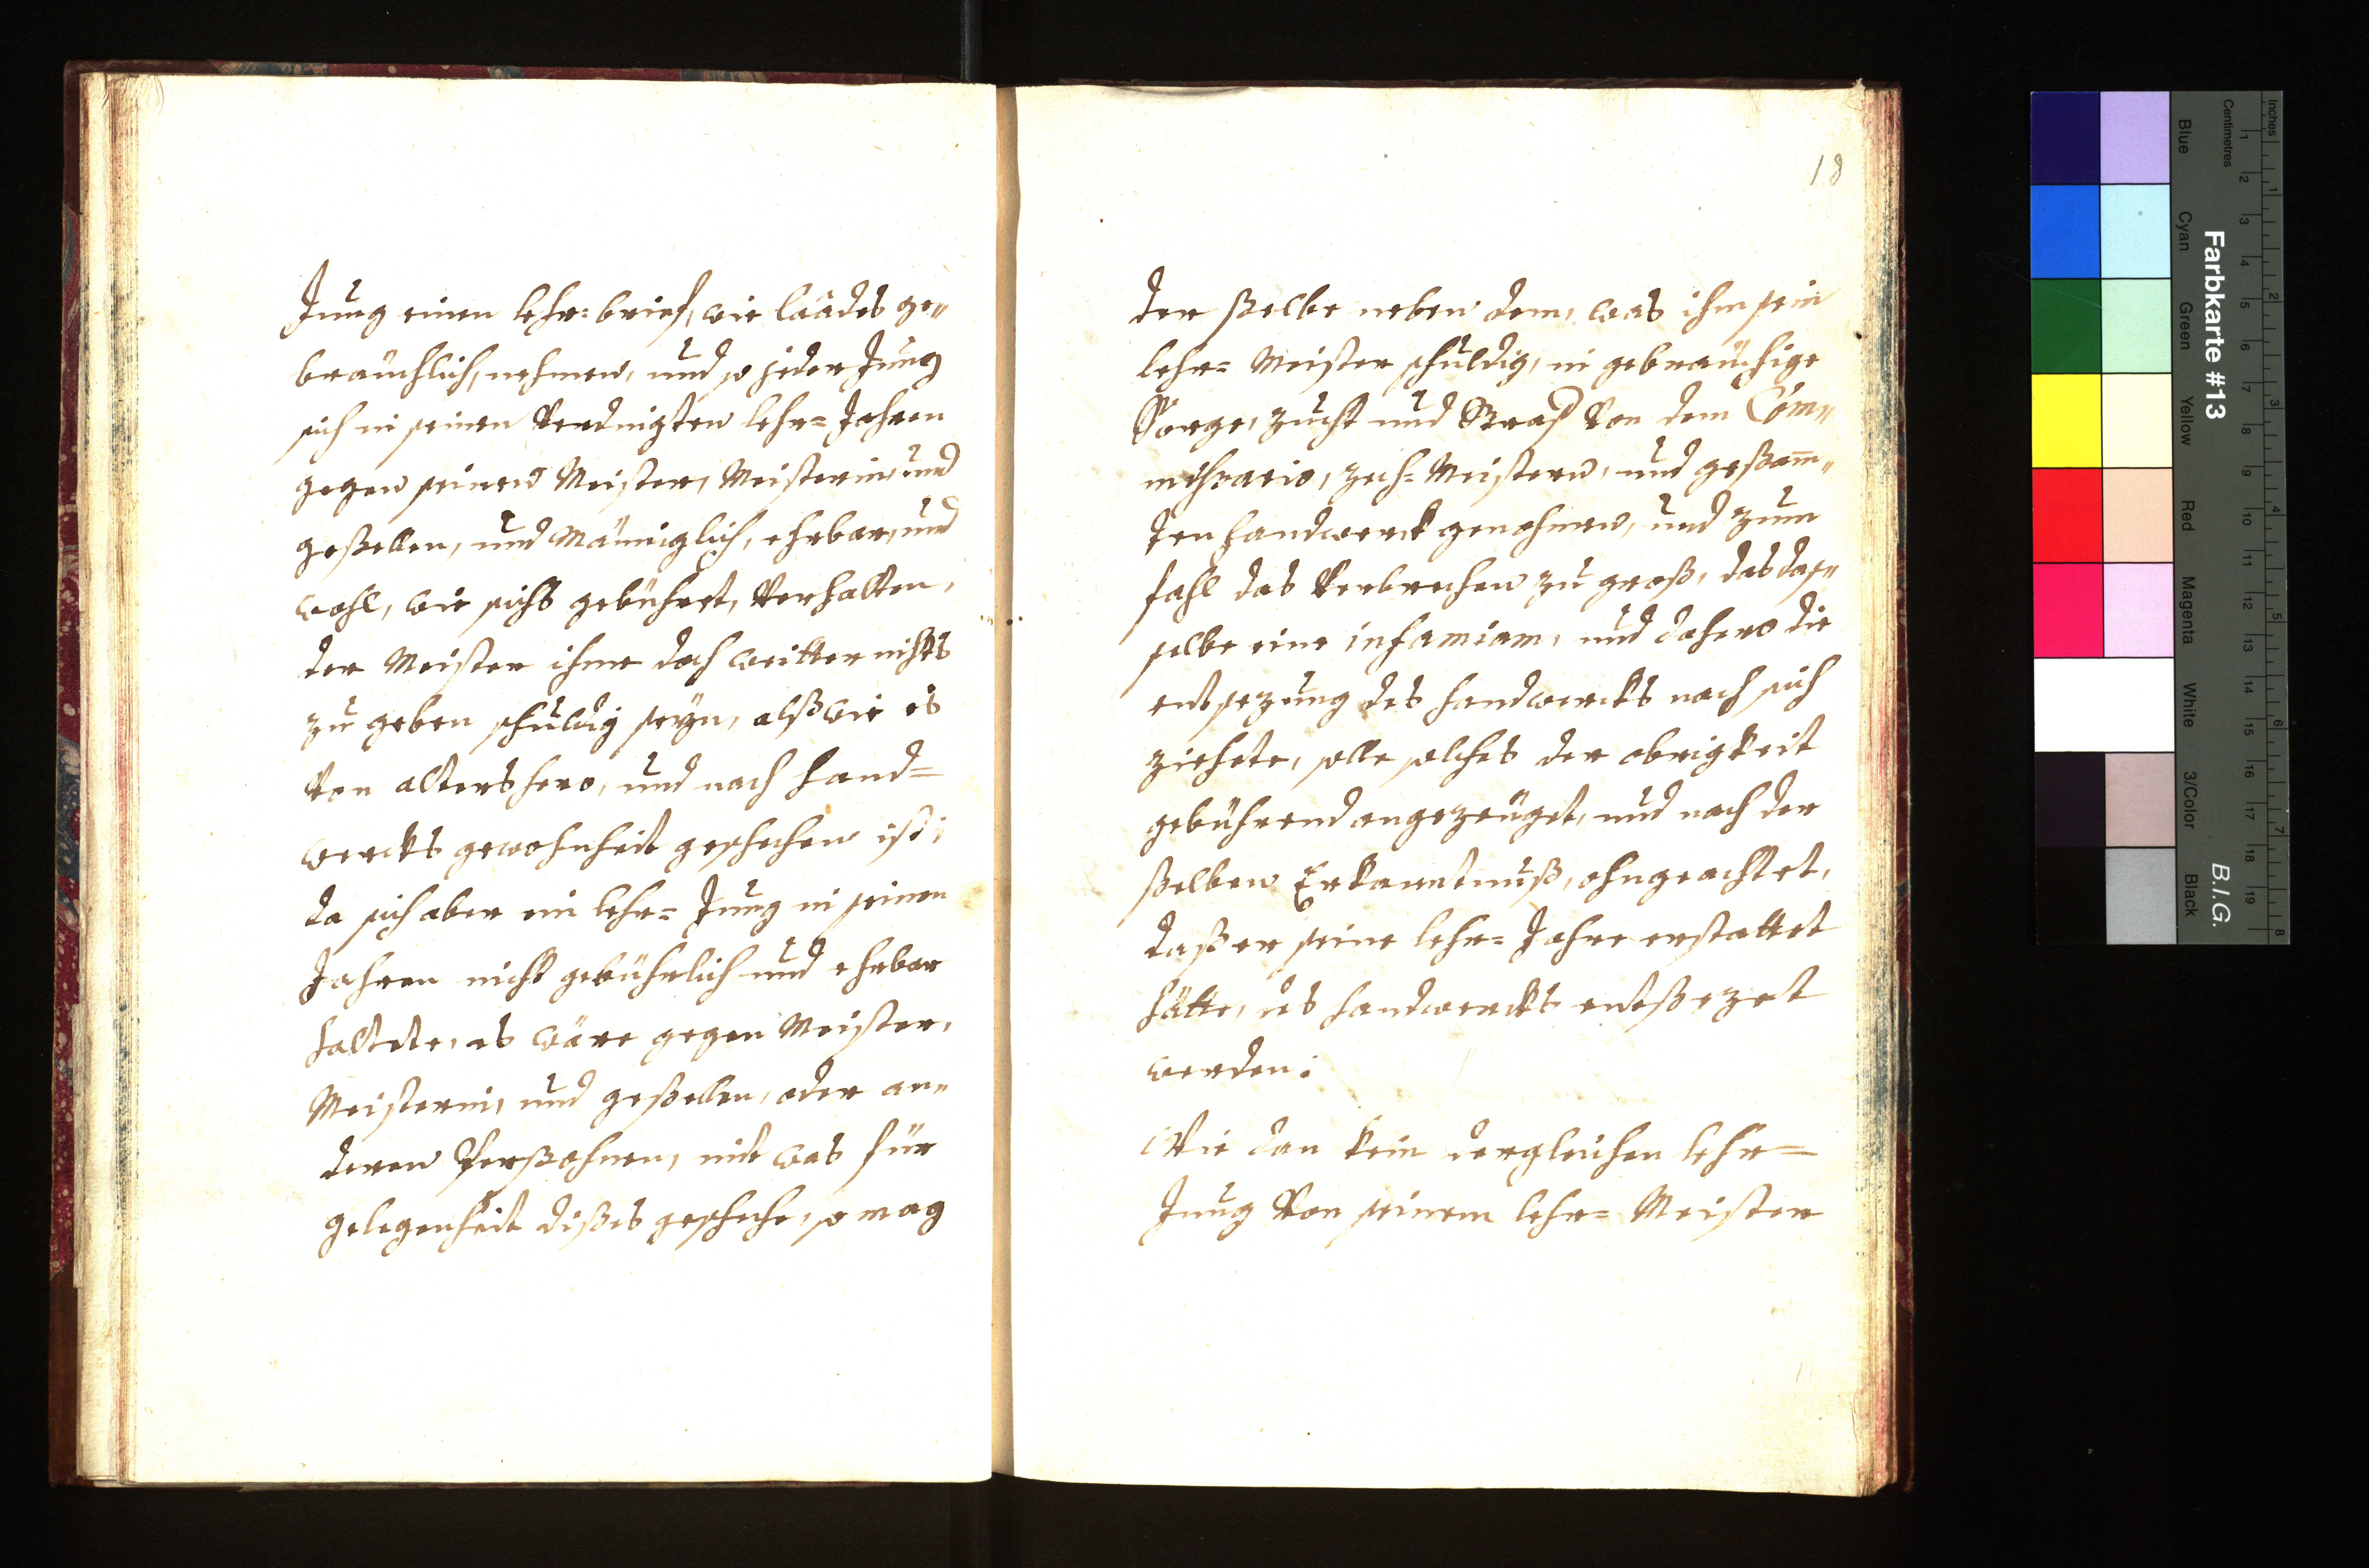 Jung einen lehr=brieff, wie landes ge„
bräuchlich, nehmen, und so jeder Jung
sich in seinen Verdingten lehr=Jahren
gegen seinen Meister, Meisterin, und
geßellen, und Männiglich, ehrbar, und
wohl, wie sichs gebühret, Verhalten,
der Meister ihme doch weitter nichts
zu geben schuldig seyn, alß wie es
Von alters hero, und nach hand=
wercks gewohnheit geschehen ist;
da sich aber ein lehr=Jung in seinen
Jahren nicht gebührlich und ehrbar
haltete, es wäre gegen Meister,
Meisterin, und geßellen, oder an„
deren Perßohnen, mit was für
gelegenheit dißes geschehe, so mag
18
der ßelbe neben dem, was ihm sein
lehr=Meister schuldig, in gebräuchige
Sorge, zucht und Straff Von dem Com„
mißario, zech=Meistern, und geßam̅„
ten handwerck genohmen, und zum
fahl das Verbrechen zu groß, das das„
selbe eine infamiam, und dahero die
entsezung des handwercks nach sich
ziehete, solle solches der obrigkeit
gebührend angezeüget, und nach der
ßelben Erkanntnuß, ohngeachtet,
daß er seine lehr=Jahre erstattet
hätte, des handwercks entßezet
werden;
Wie dan kein dergleichen lehr=
Jung Von seinem lehr=Meister
Farbkarte #13
B.I.G.
Inches
Centimetres
Blue
Cyan
Green
Yellow
Red
Magenta
White
3/Color
Black
1 2 3 4 5 6 7 8 9 10 11 12 13 14 15 16 17 18 19
1 2 3 4 5 6 7 8